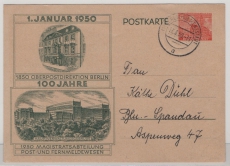 1. JANUAR 1950
POSTKARTE
1850 OBERPOSTDIREKTION BERLIN
100 JAHRE
1950 MAGISTRATSABTEILUNG
POST UND FERNMELDEWESEN
Frau
Käthe Diehl
Bln.-Spandau
Aspenweg 47